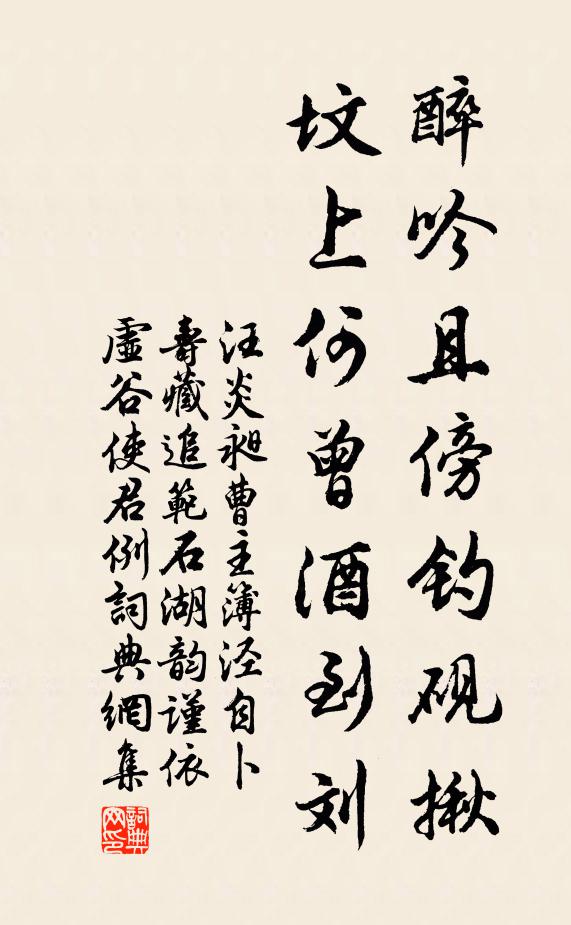 醉吟且傍钓砚揪
坟上何曾酒到刘
汪炎昶曹主簿泾自卜
寿藏追范石湖韵谨依
虚谷使君例词典网集
詞典
网印